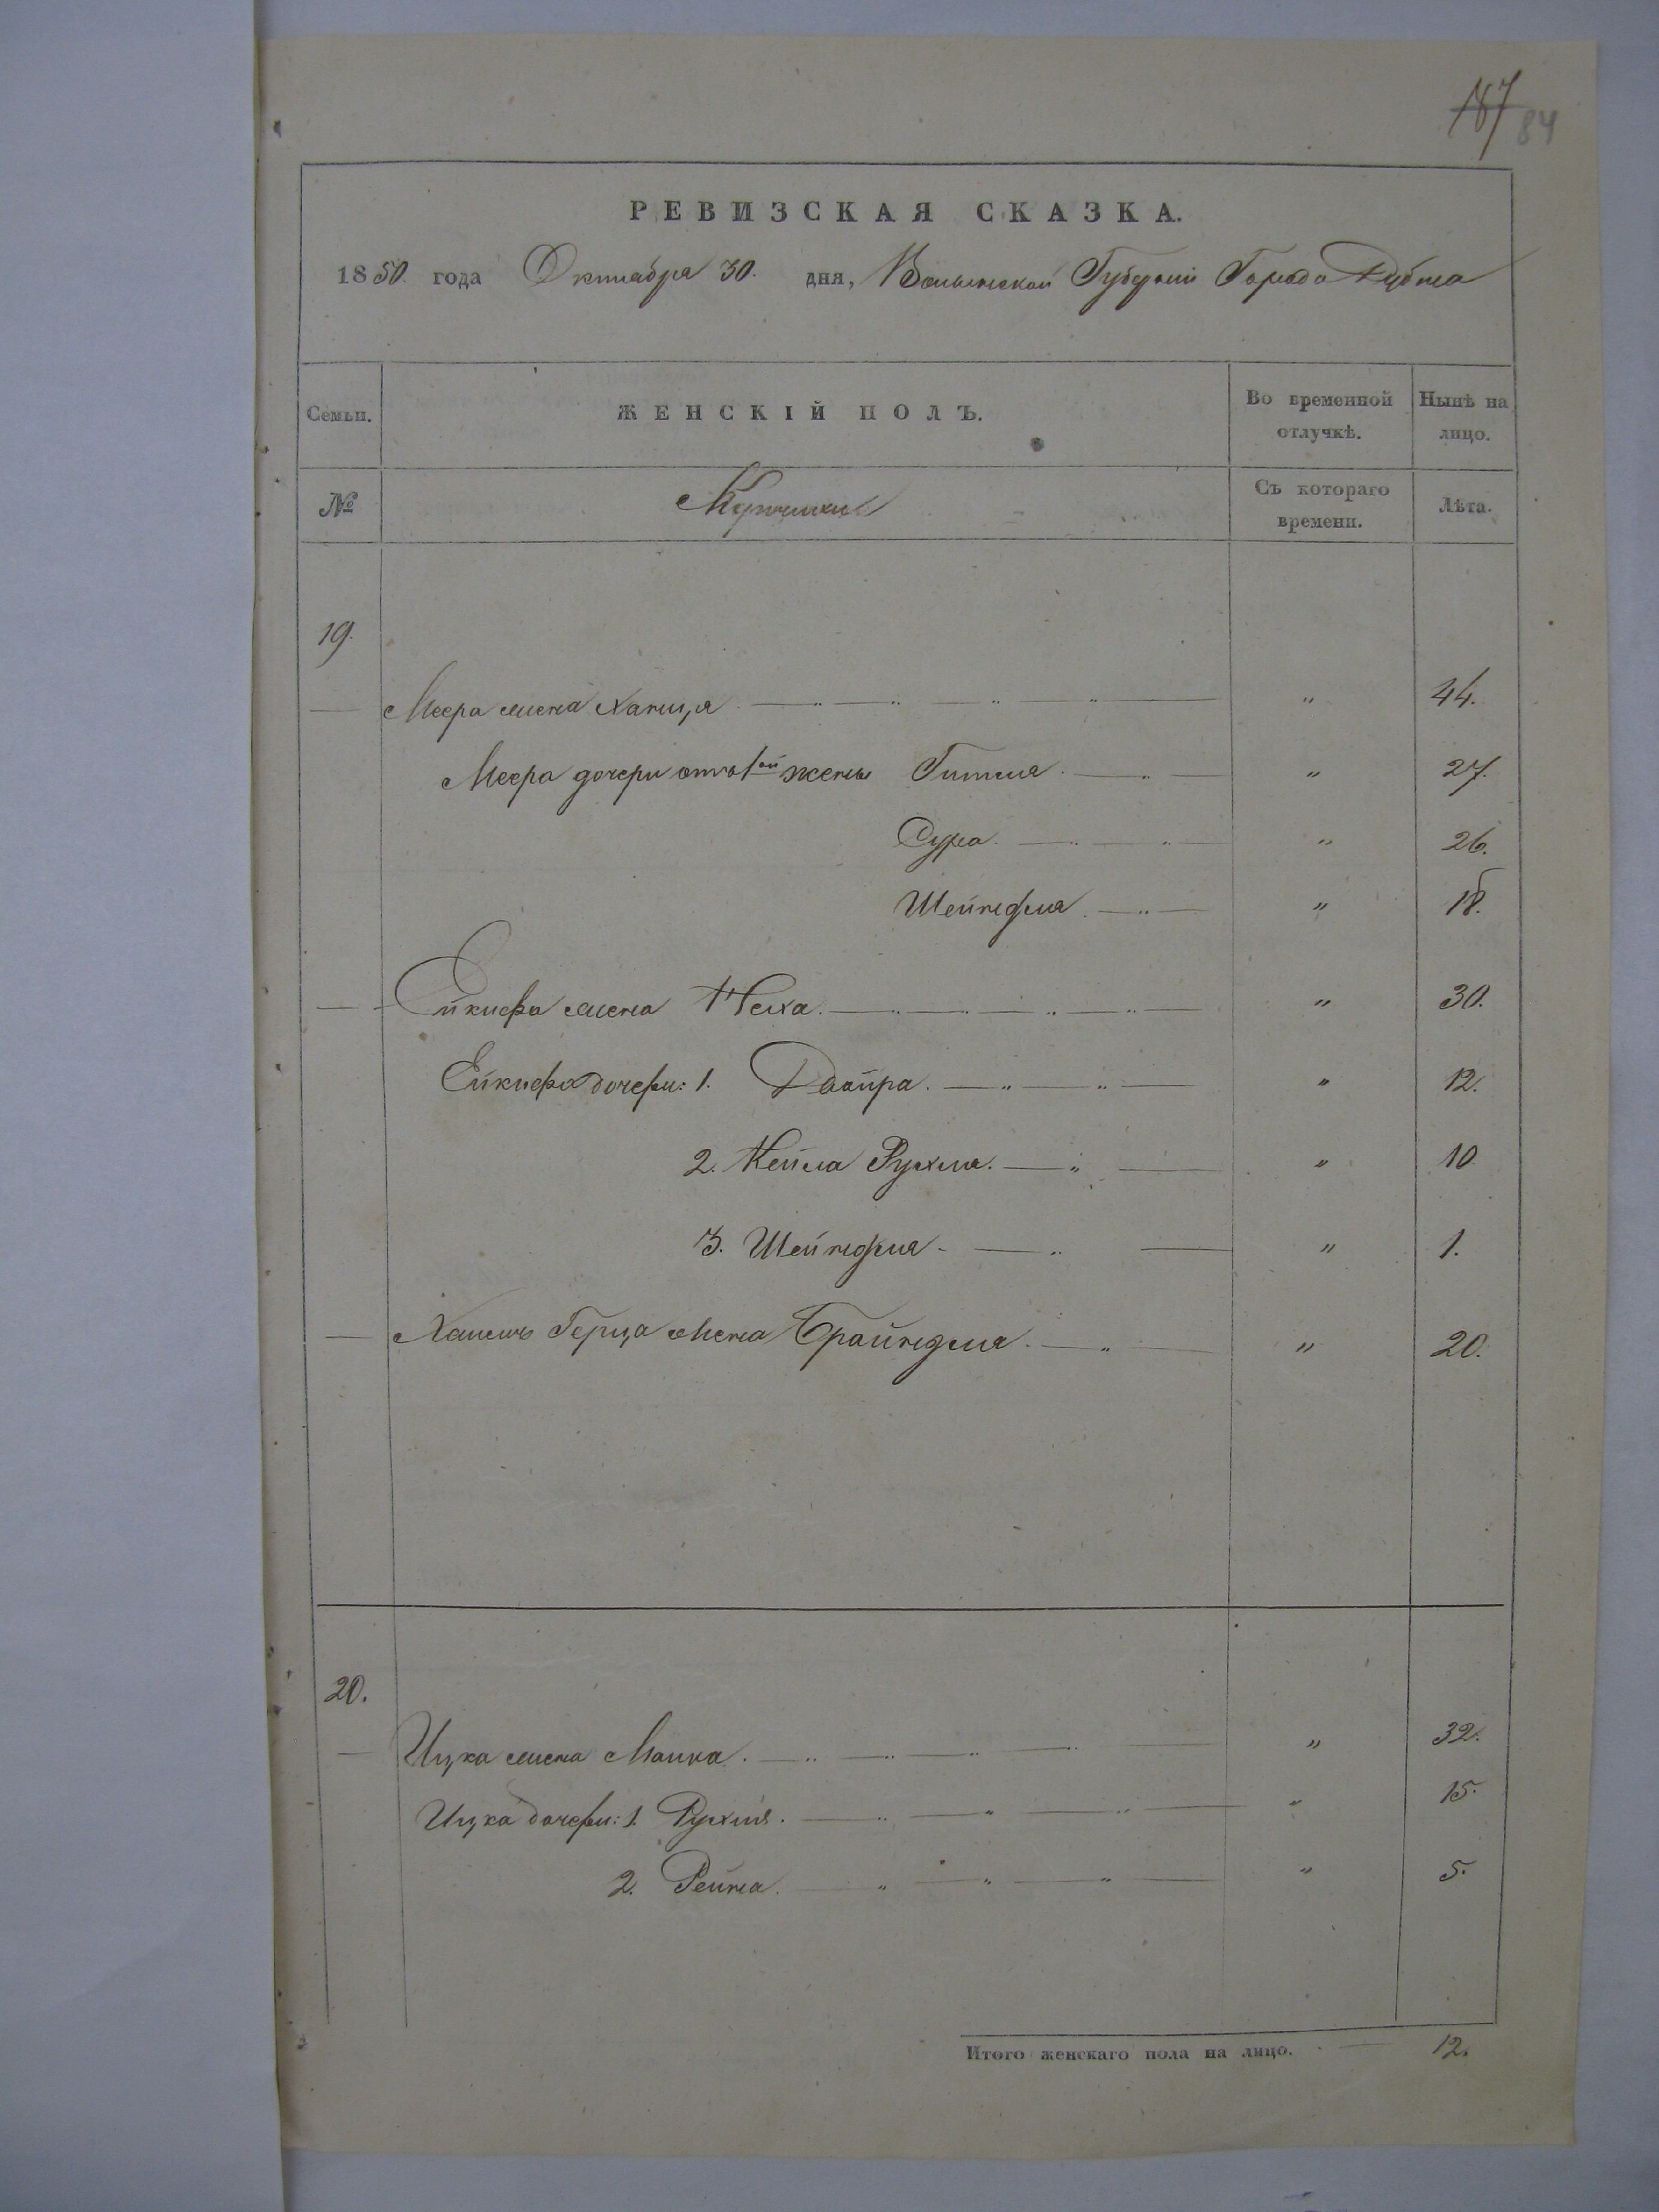 187 84
РЕВИЗСКАЯ СКАЗКА.
1850 года Октября 30. дня, Волынской Губерніи Города Дубна
Семьи. ЖЕНСКІЙ ПОЛЪ. Во временной отлучкѣ. Нынѣ на лицо.
№ Съ котораго времени. Лѣта.
19.
Меера жена Ханця " 44.
Меера дочери отъ 1ой жены Гитля " 27.
Сура " 26.
Шейндля " 18.
жена " 30.
дочери: 1. Двойра " 12.
2. Кейла Рухля " 10
3. Шейндля " 1.
Герца жена Брайндля " 20.
20.
Ицка жена " 32.
Ицка дочери: 1. Рухля " 15.
2. Рейза " 5.
Итого женскаго пола на лицо. 12.